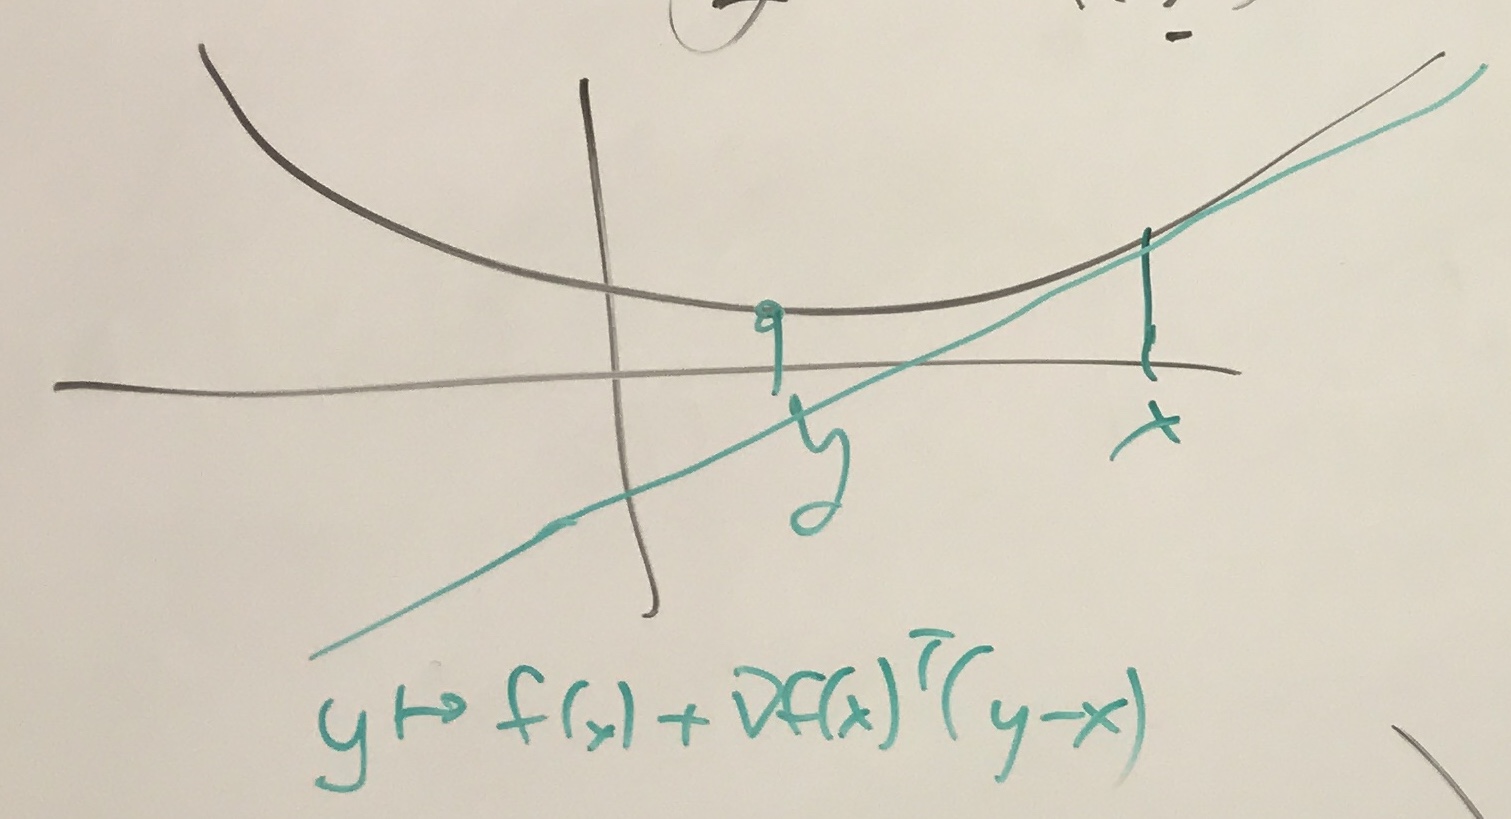 y
x
y ↦ f(x) + ∇f(x)ᵀ(y-x)